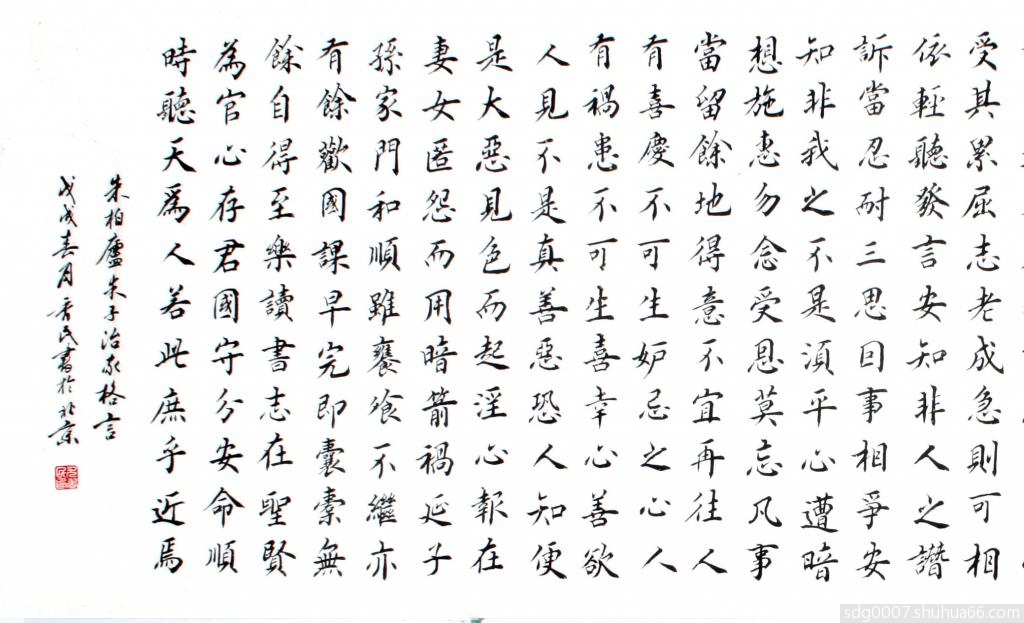 受其累屈志老成急則可相
依輕聽發言安知非人之譖
訴當忍耐三思因事相爭安
知非我之不是須平心遭暗
想施惠勿念受恩莫忘凡事
當留餘地得意不宜再往人
有喜慶不可生妒忌之心人
有禍患不可生喜幸心善欲
人見不是真善惡恐人知便
是大惡見色而起淫心報在
妻女匿怨而用暗箭禍延子
孫家門和順雖饔飧不繼亦
有餘歡國課早完即囊橐無
餘自得至樂讀書志在聖賢
為官心存君國守分安命順
時聽天爲人若此庶乎近焉
朱柏廬朱子治家格言
戊戌春月民書於北京
sdg0007.shuhua66.com